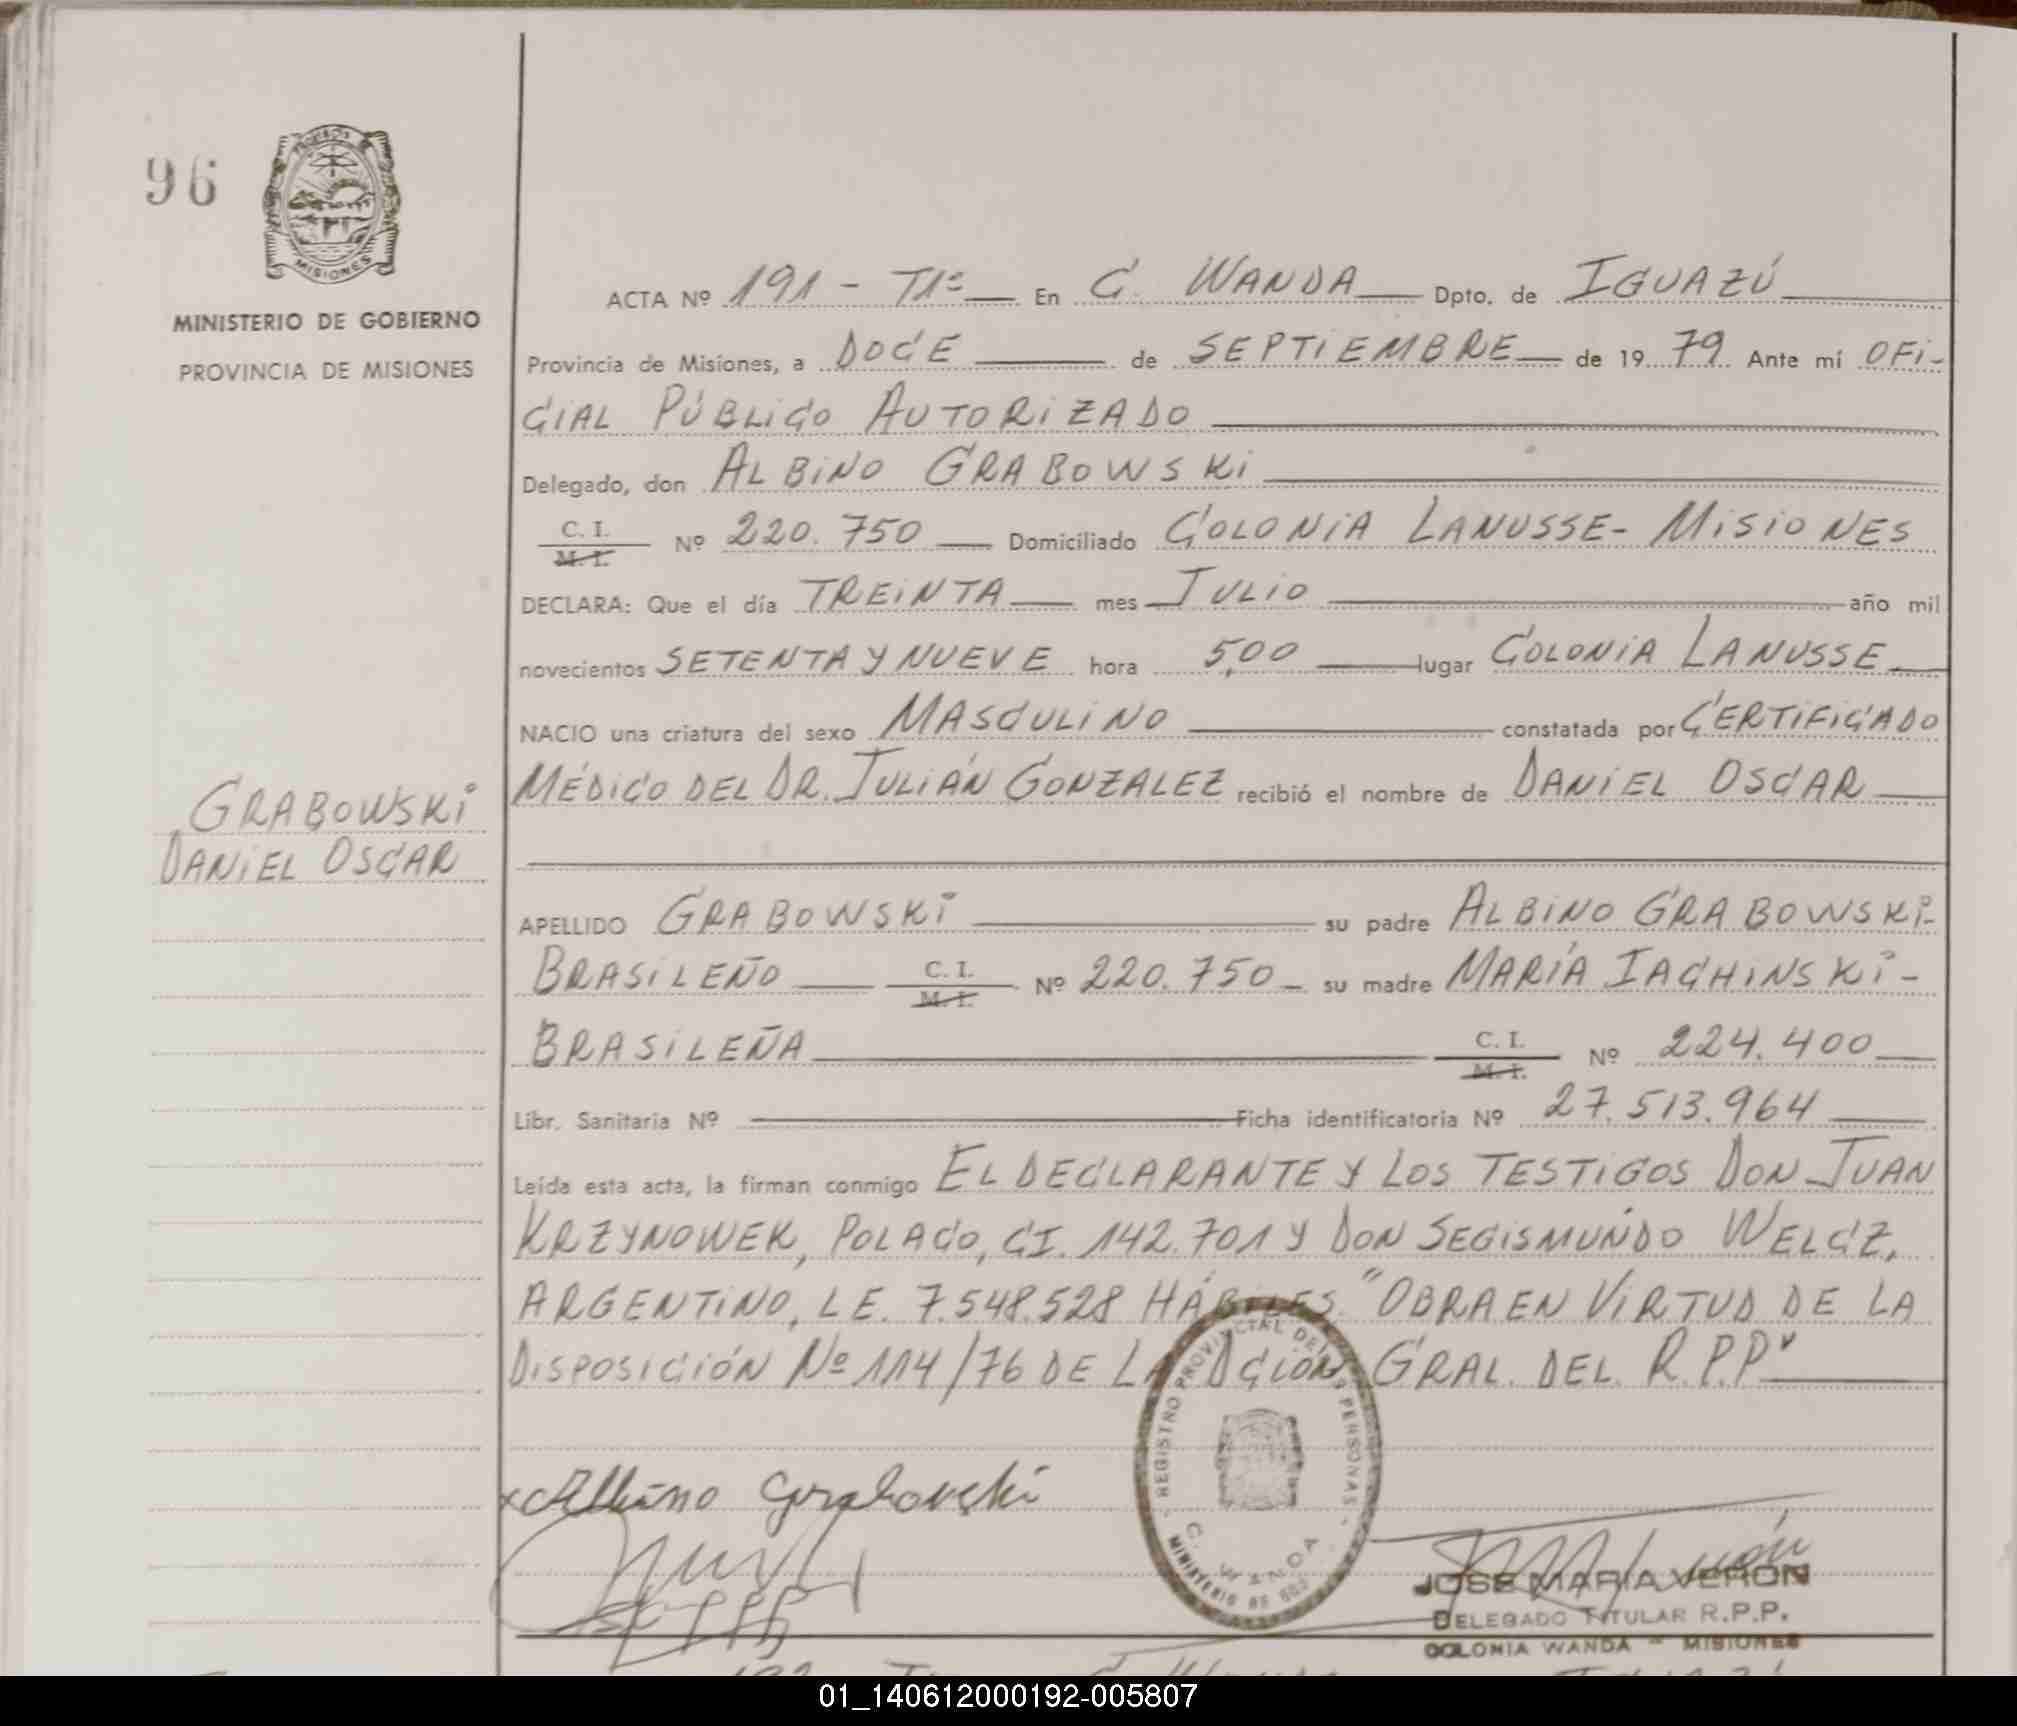 96
MISIONES
MINISTERIO DE GOBIERNO
PROVINCIA DE MISIONES
ACTA Nº 191 - T1º En C. WANDA Dpto. de IGUAZÚ
Provincia de Misiones, a DOCE de SEPTIEMBRE de 1979 Ante mí OFI-
CIAL PÚBLICO AUTORIZADO
Delegado, don ALBINO GRABOWSKI
C. I.
M. I. Nº 220.750 Domiciliado COLONIA LANUSSE- MISIONES
DECLARA: Que el día TREINTA mes JULIO año mil
novecientos SETENTA Y NUEVE hora 5,00 lugar COLONIA LANUSSE
NACIO una criatura del sexo MASCULINO constatada por CERTIFICADO
MÉDICO DEL DR. JULIÁN GONZALEZ recibió el nombre de DANIEL OSCAR
GRABOWSKI
DANIEL OSCAR
APELLIDO GRABOWSKI su padre ALBINO GRABOWSKI-
BRASILEÑO C. I. M. I. Nº 220.750- su madre MARÍA IACHINSKI-
BRASILEÑA C. I. M. I. Nº 224.400
Libr. Sanitaria Nº Ficha identificatoria Nº 27.513.964
Leída esta acta, la firman conmigo EL DECLARANTE Y LOS TESTIGOS DON JUAN
KRZYNOWEK, POLACO, CI. 142.701 Y DON SEGISMUNDO WELCZ,
ARGENTINO, LE. 7.548.528 HÁBILES. "OBRA EN VIRTUD DE LA
DISPOSICIÓN Nº 114/76 DE LA DCIÓN GRAL. DEL R.P.P"
REGISTRO PROVINCIAL DE LAS PERSONAS
C. WANDA
MINISTERIO DE GOB.
x Albino Grabowski
JOSE MARIA VERON
DELEGADO TITULAR R.P.P.
COLONIA WANDA - MISIONES
01_140612000192-005807